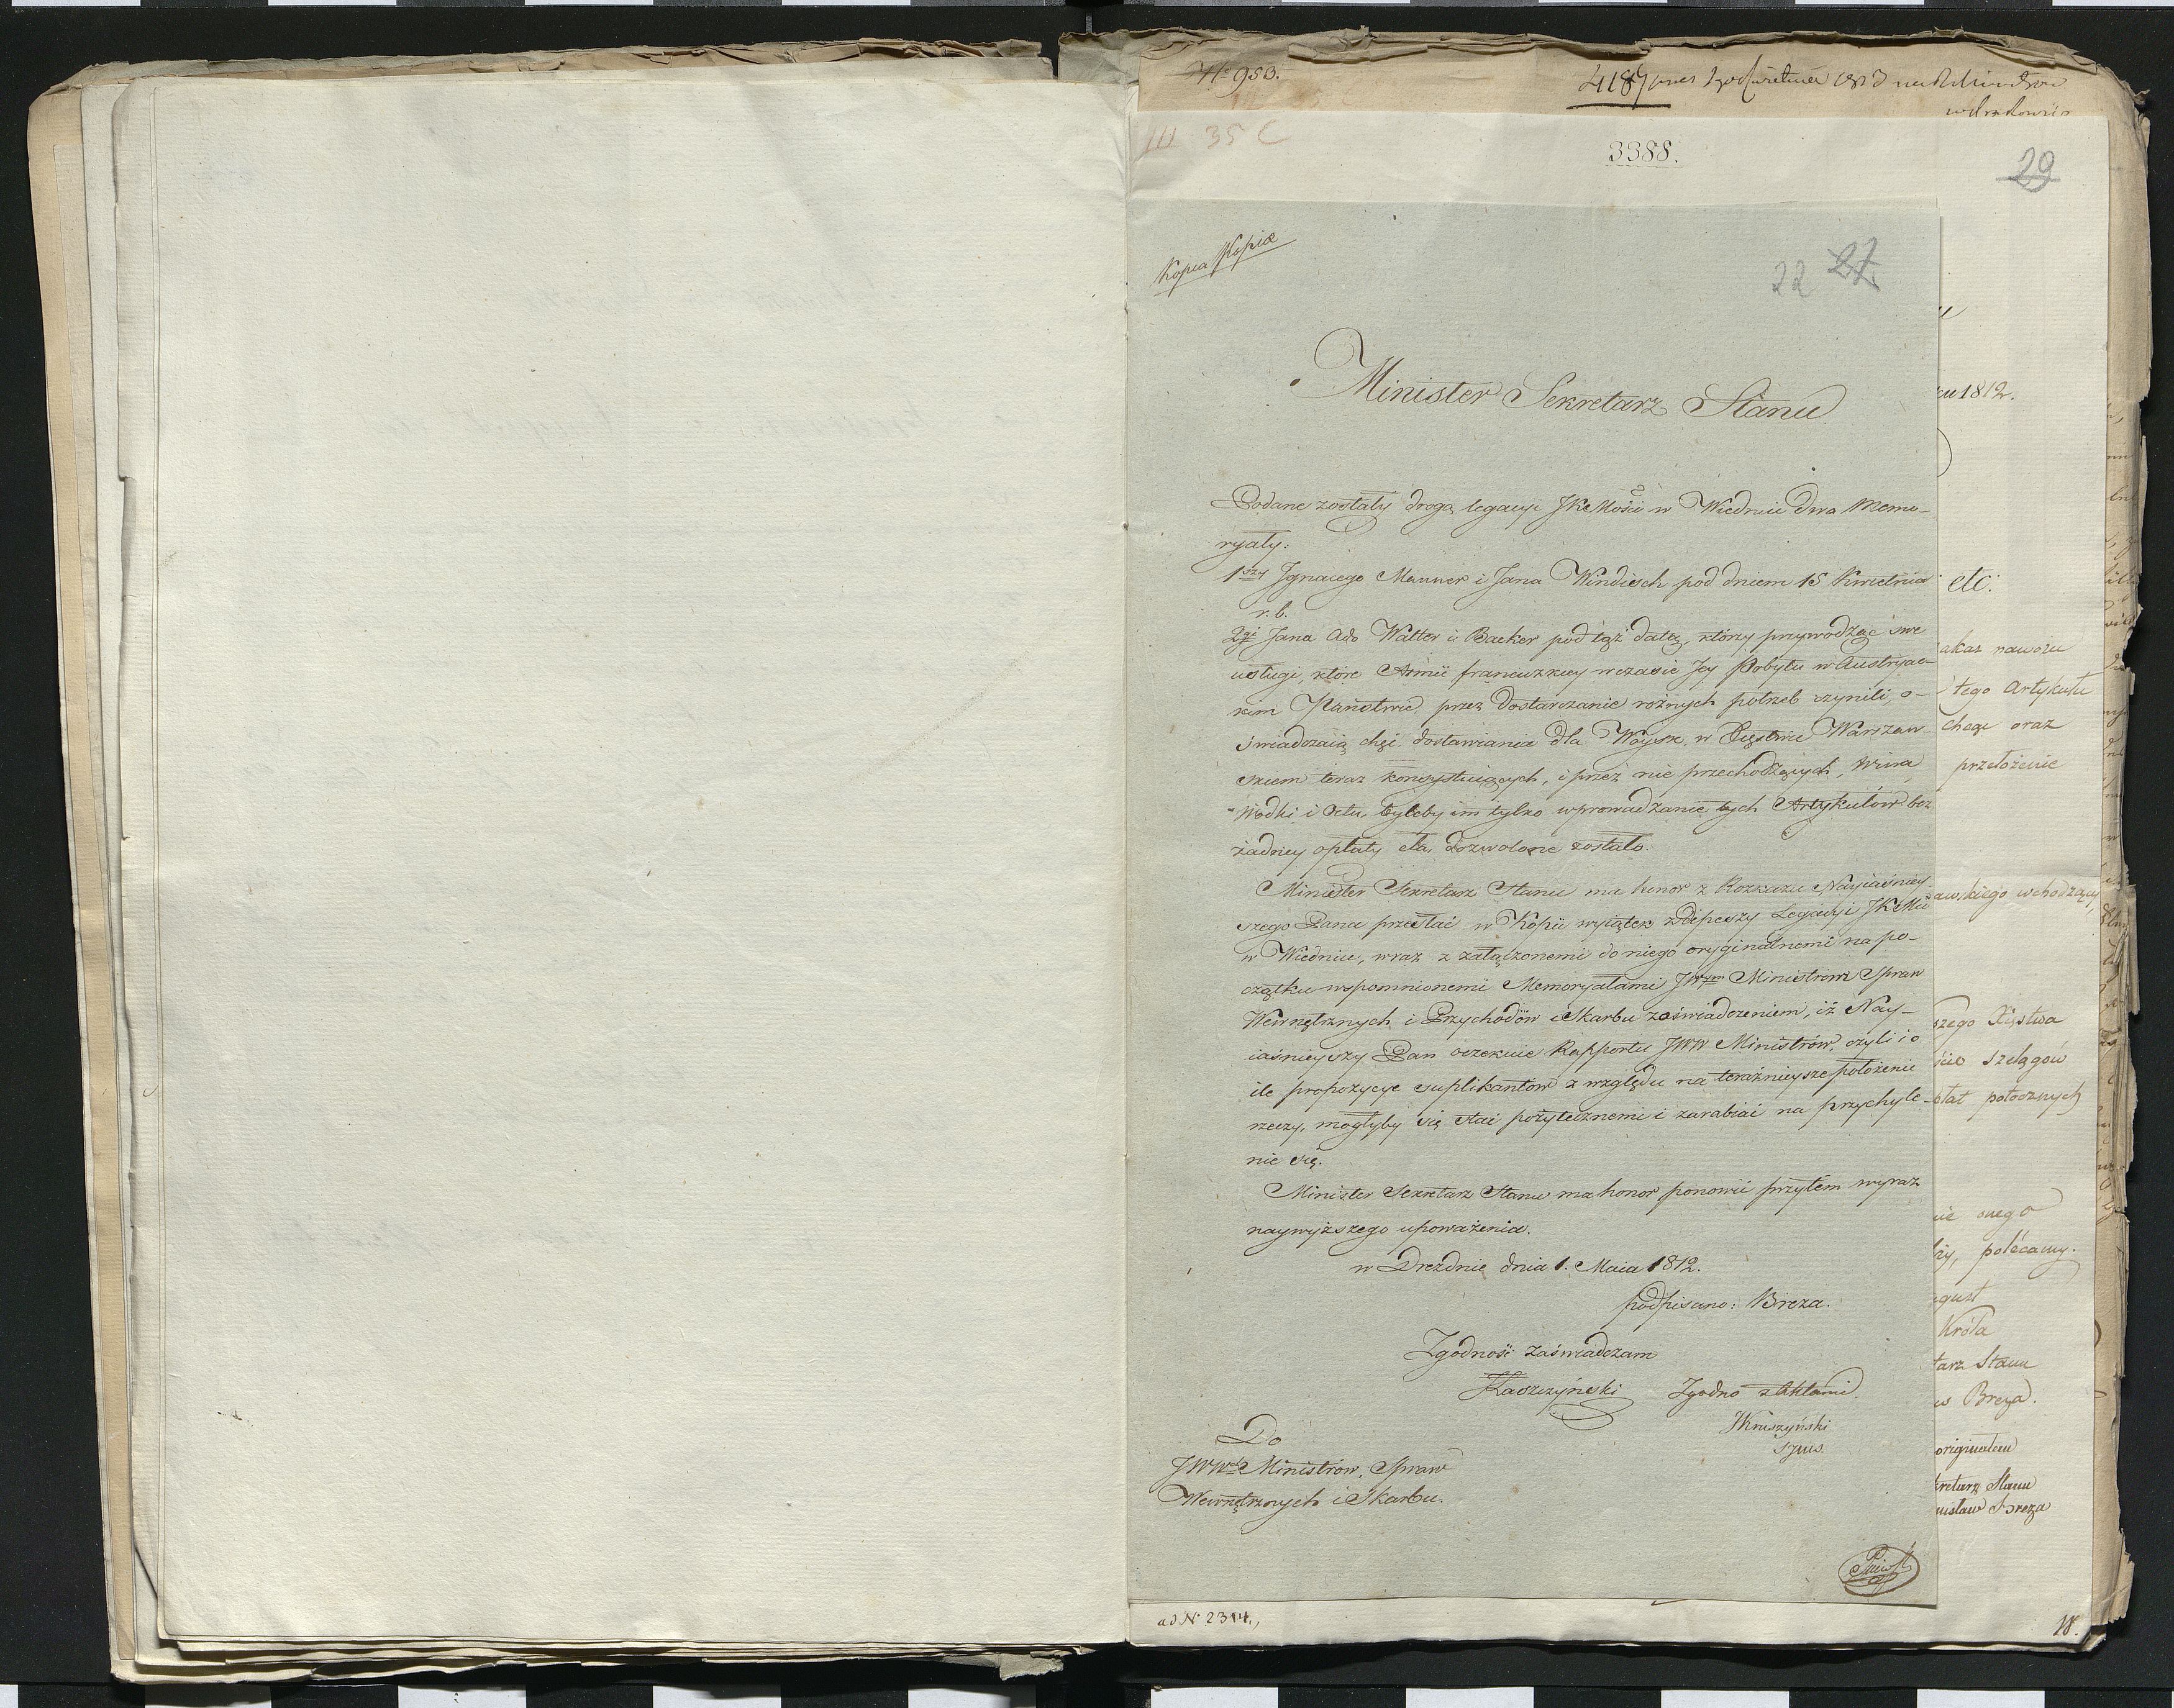 N 950.
III 35 C
3388.
29
Kopia Kopiæ
22 27.
Minister Sekretarz Stanu
Podane zostały drogą legacyi JKMości w Wiedniu dwa Memo-
ryały:
1szy Jgnacego Manner i Jana Windisch pod dniem 15 Kwietnia
r. b.
2gi Jana Ado Walter i Backer pod tąż datą, którzy przywodząc swe
usługi, które Armii francuzkiey wczasie Jey Pobytu w Austryac-
kim Państwie przez dostarczanie różnych potrzeb czynili, o-
świadczaią chęć dostawiania dla Woysk w Xięstwie Warszaw-
skiem teraz konsystuiących, i przez nie przechodzących, Wina,
Wódki i Octu, byleby im tylko wprowadzanie tych Artykułów bez
żadney opłaty cła, dozwolone zostało.
Minister Sekretarz Stanu ma honor z Rozkazu Nayiaśniey-
szego Pana przesłać w Kopii wyiątek z Depeszy Legacyi JKMci
w Wiedniu, wraz z załączonemi do niego oryginalnemi na po-
czątku wspomnionemi Memoryałami JWym Ministrom Spraw
Wewnętrznych i Przychodów i Skarbu z oświadczeniem, iż Nay-
iaśnieyszy Pan oczekuie Rapportu JWW Ministrów, czyli i o
ile propozycye suplikantów z względu na teraźnieysze położenie
rzeczy, mogłyby się stać pożytecznemi i zarabiać na przychyle-
nie się.
Minister Sekretarz Stanu ma honor ponowić przytem wyraz
naywyższego upoważenia.
w Dreznie dnia 1. Maia 1812.
podpisano: Breza.
Zgodność zaświadczam
Kaszczyński Zgodno z Aktami
JKruszyński
Do
JWWch Ministrów, Spraw
Wewnętrznych i Skarbu.
ad N. 2314.,
18.
ku 1812.
etc:
akaz nawozu
tego Artykułu
chcąc oraz
przełożenie
awskiego wchodzący,
szego Xięstwa
ście szelągów
płat potocznych
nie onego
ży, polécamy.
gust
Króla
tarz Stanu
w Breza.
originalem
kretarz Stanu
nisław Breza